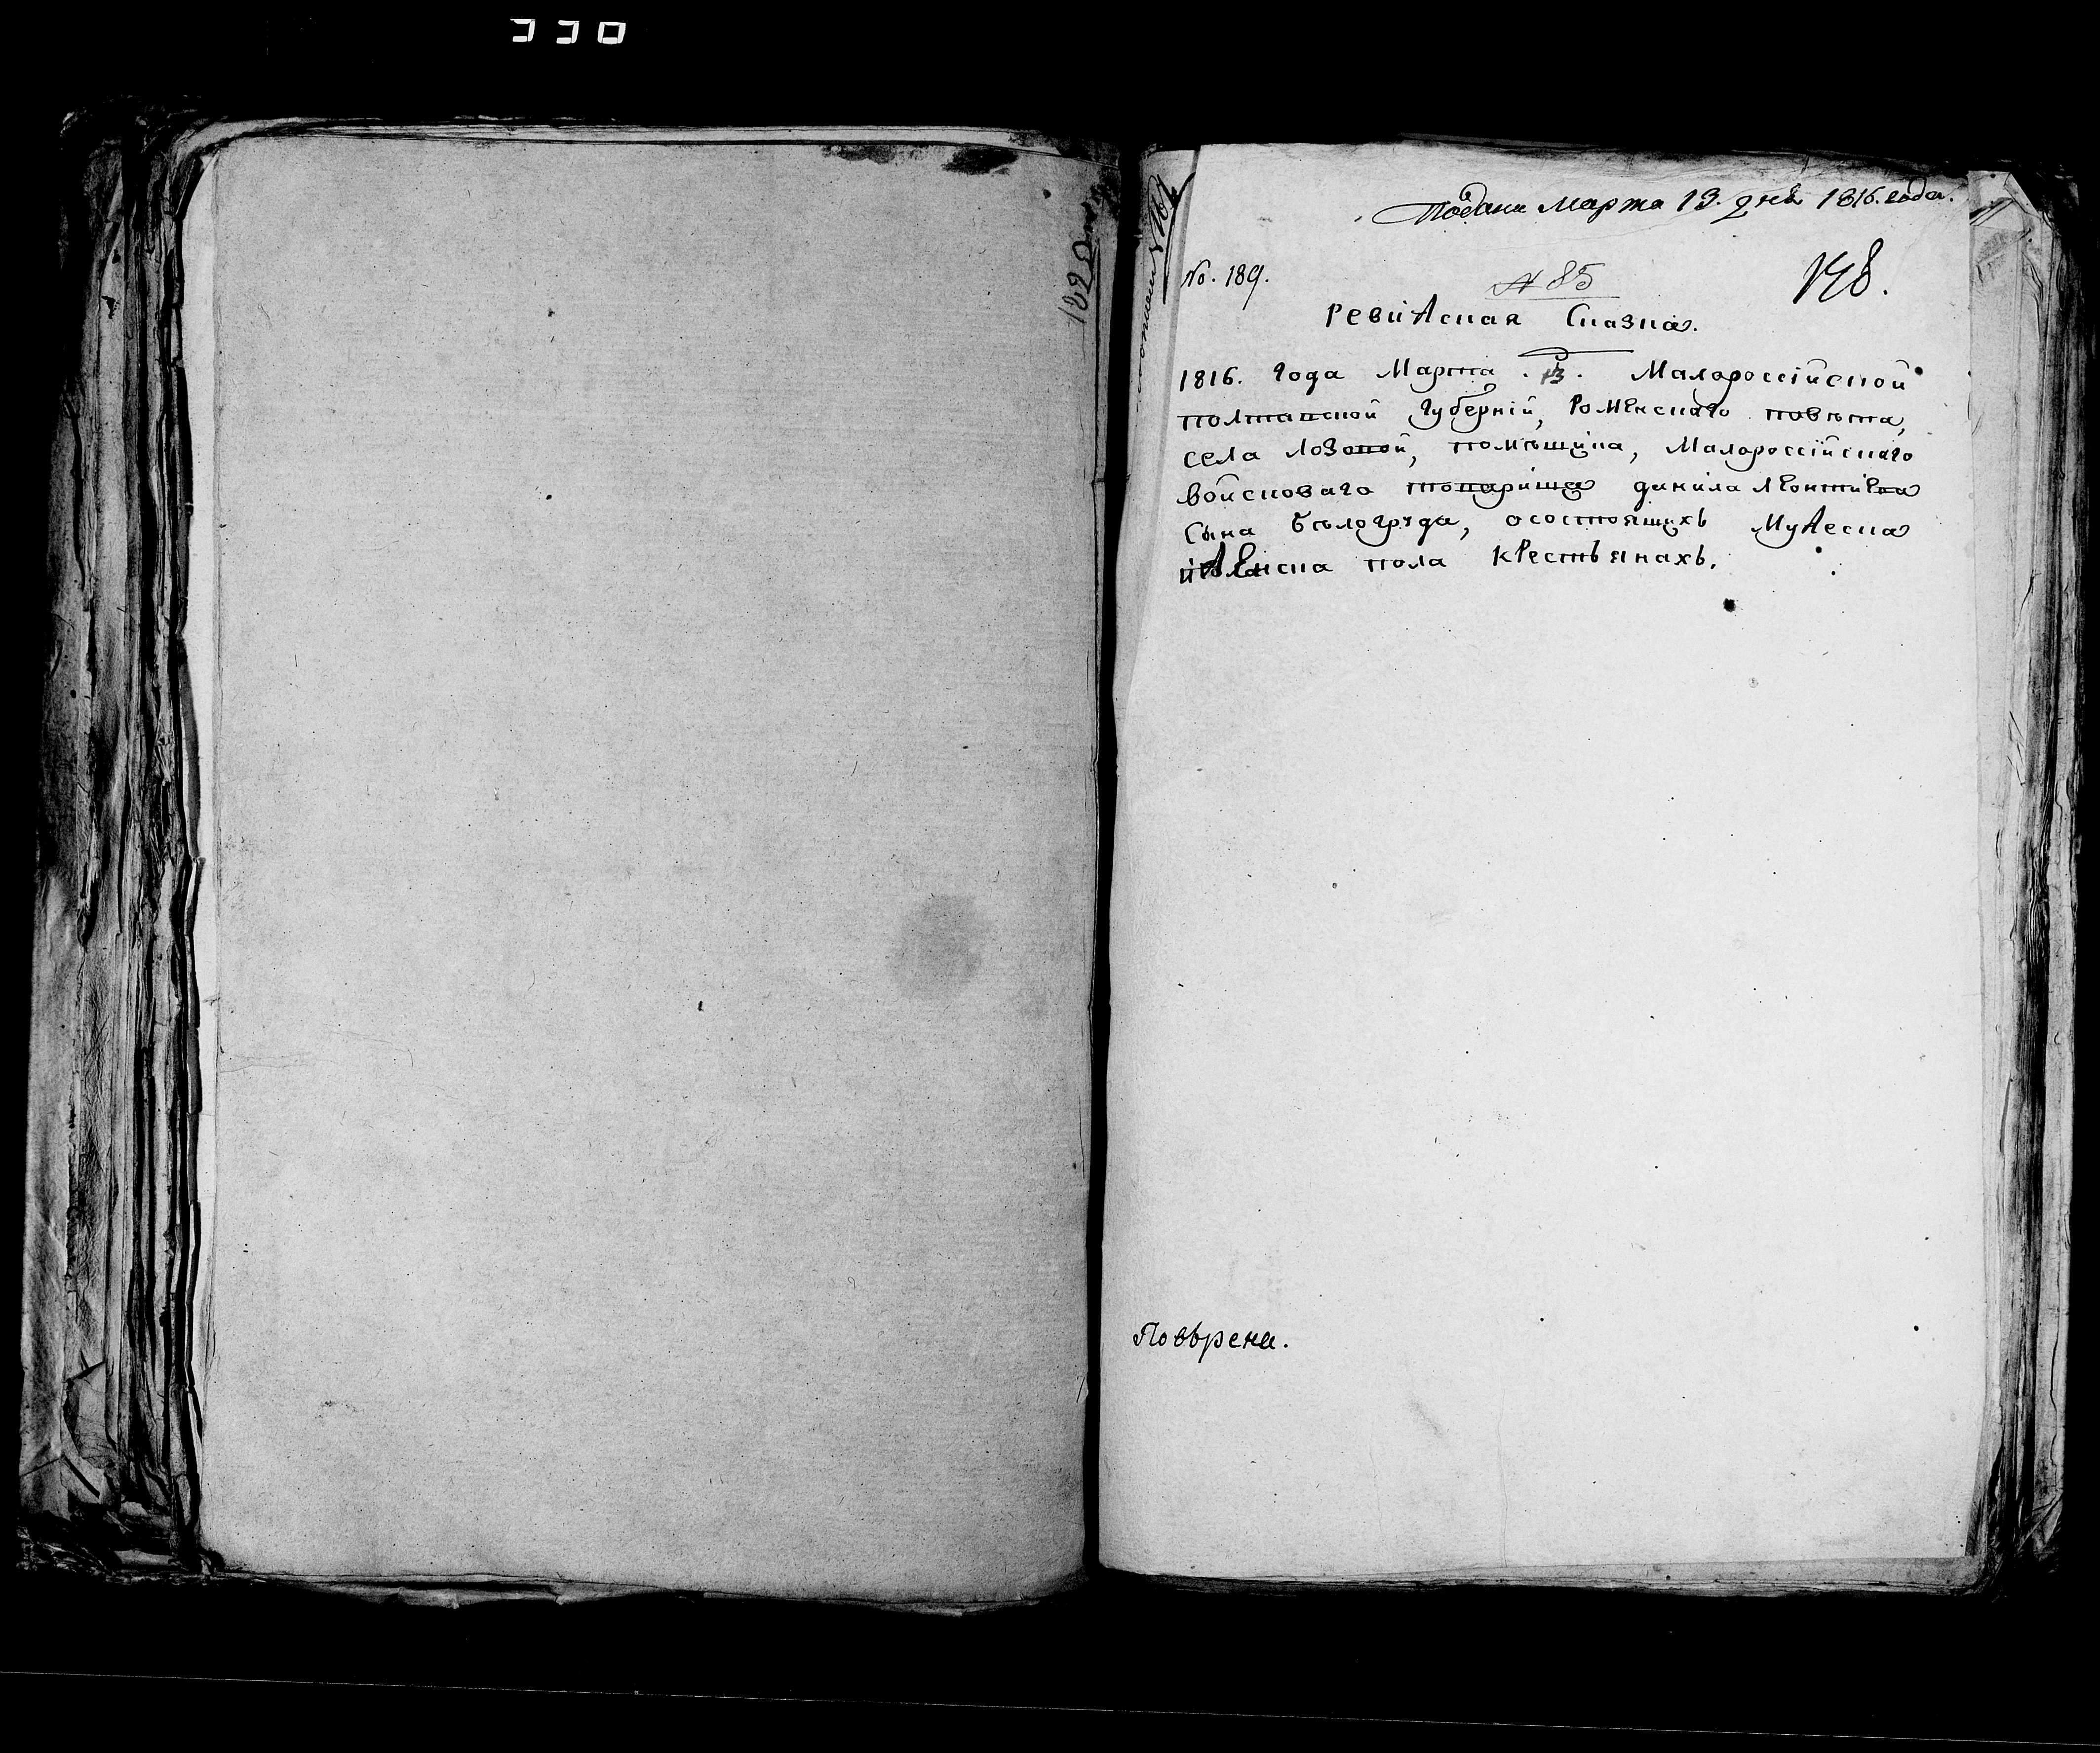 330
Подана Марта 13. дня 1816. года.
No. 189.
№ 85
148.
Ревижская Сказка.
1816. года Марта 13. Малороссійской
полтавской губерній, Роменскаго повѣта,
села Лозовой, помѣщика, Малороссійскаго
войсковаго товарища данила Леонтіева
Сына бѣлогруда, осостоящихъ Мужеска
иженска пола крестьянахъ.
Повѣрена.